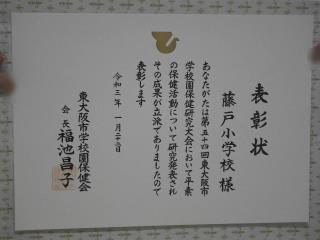 表彰状
藤戸小学校様
あなたがたは第五十四回東大阪市
学校園保健研究大会において平素
の保健活動について研究発表され
その成果が立派でありましたので
表彰します
令和三年一月二十六日
東大阪市学校園保健会
会長 福池昌子